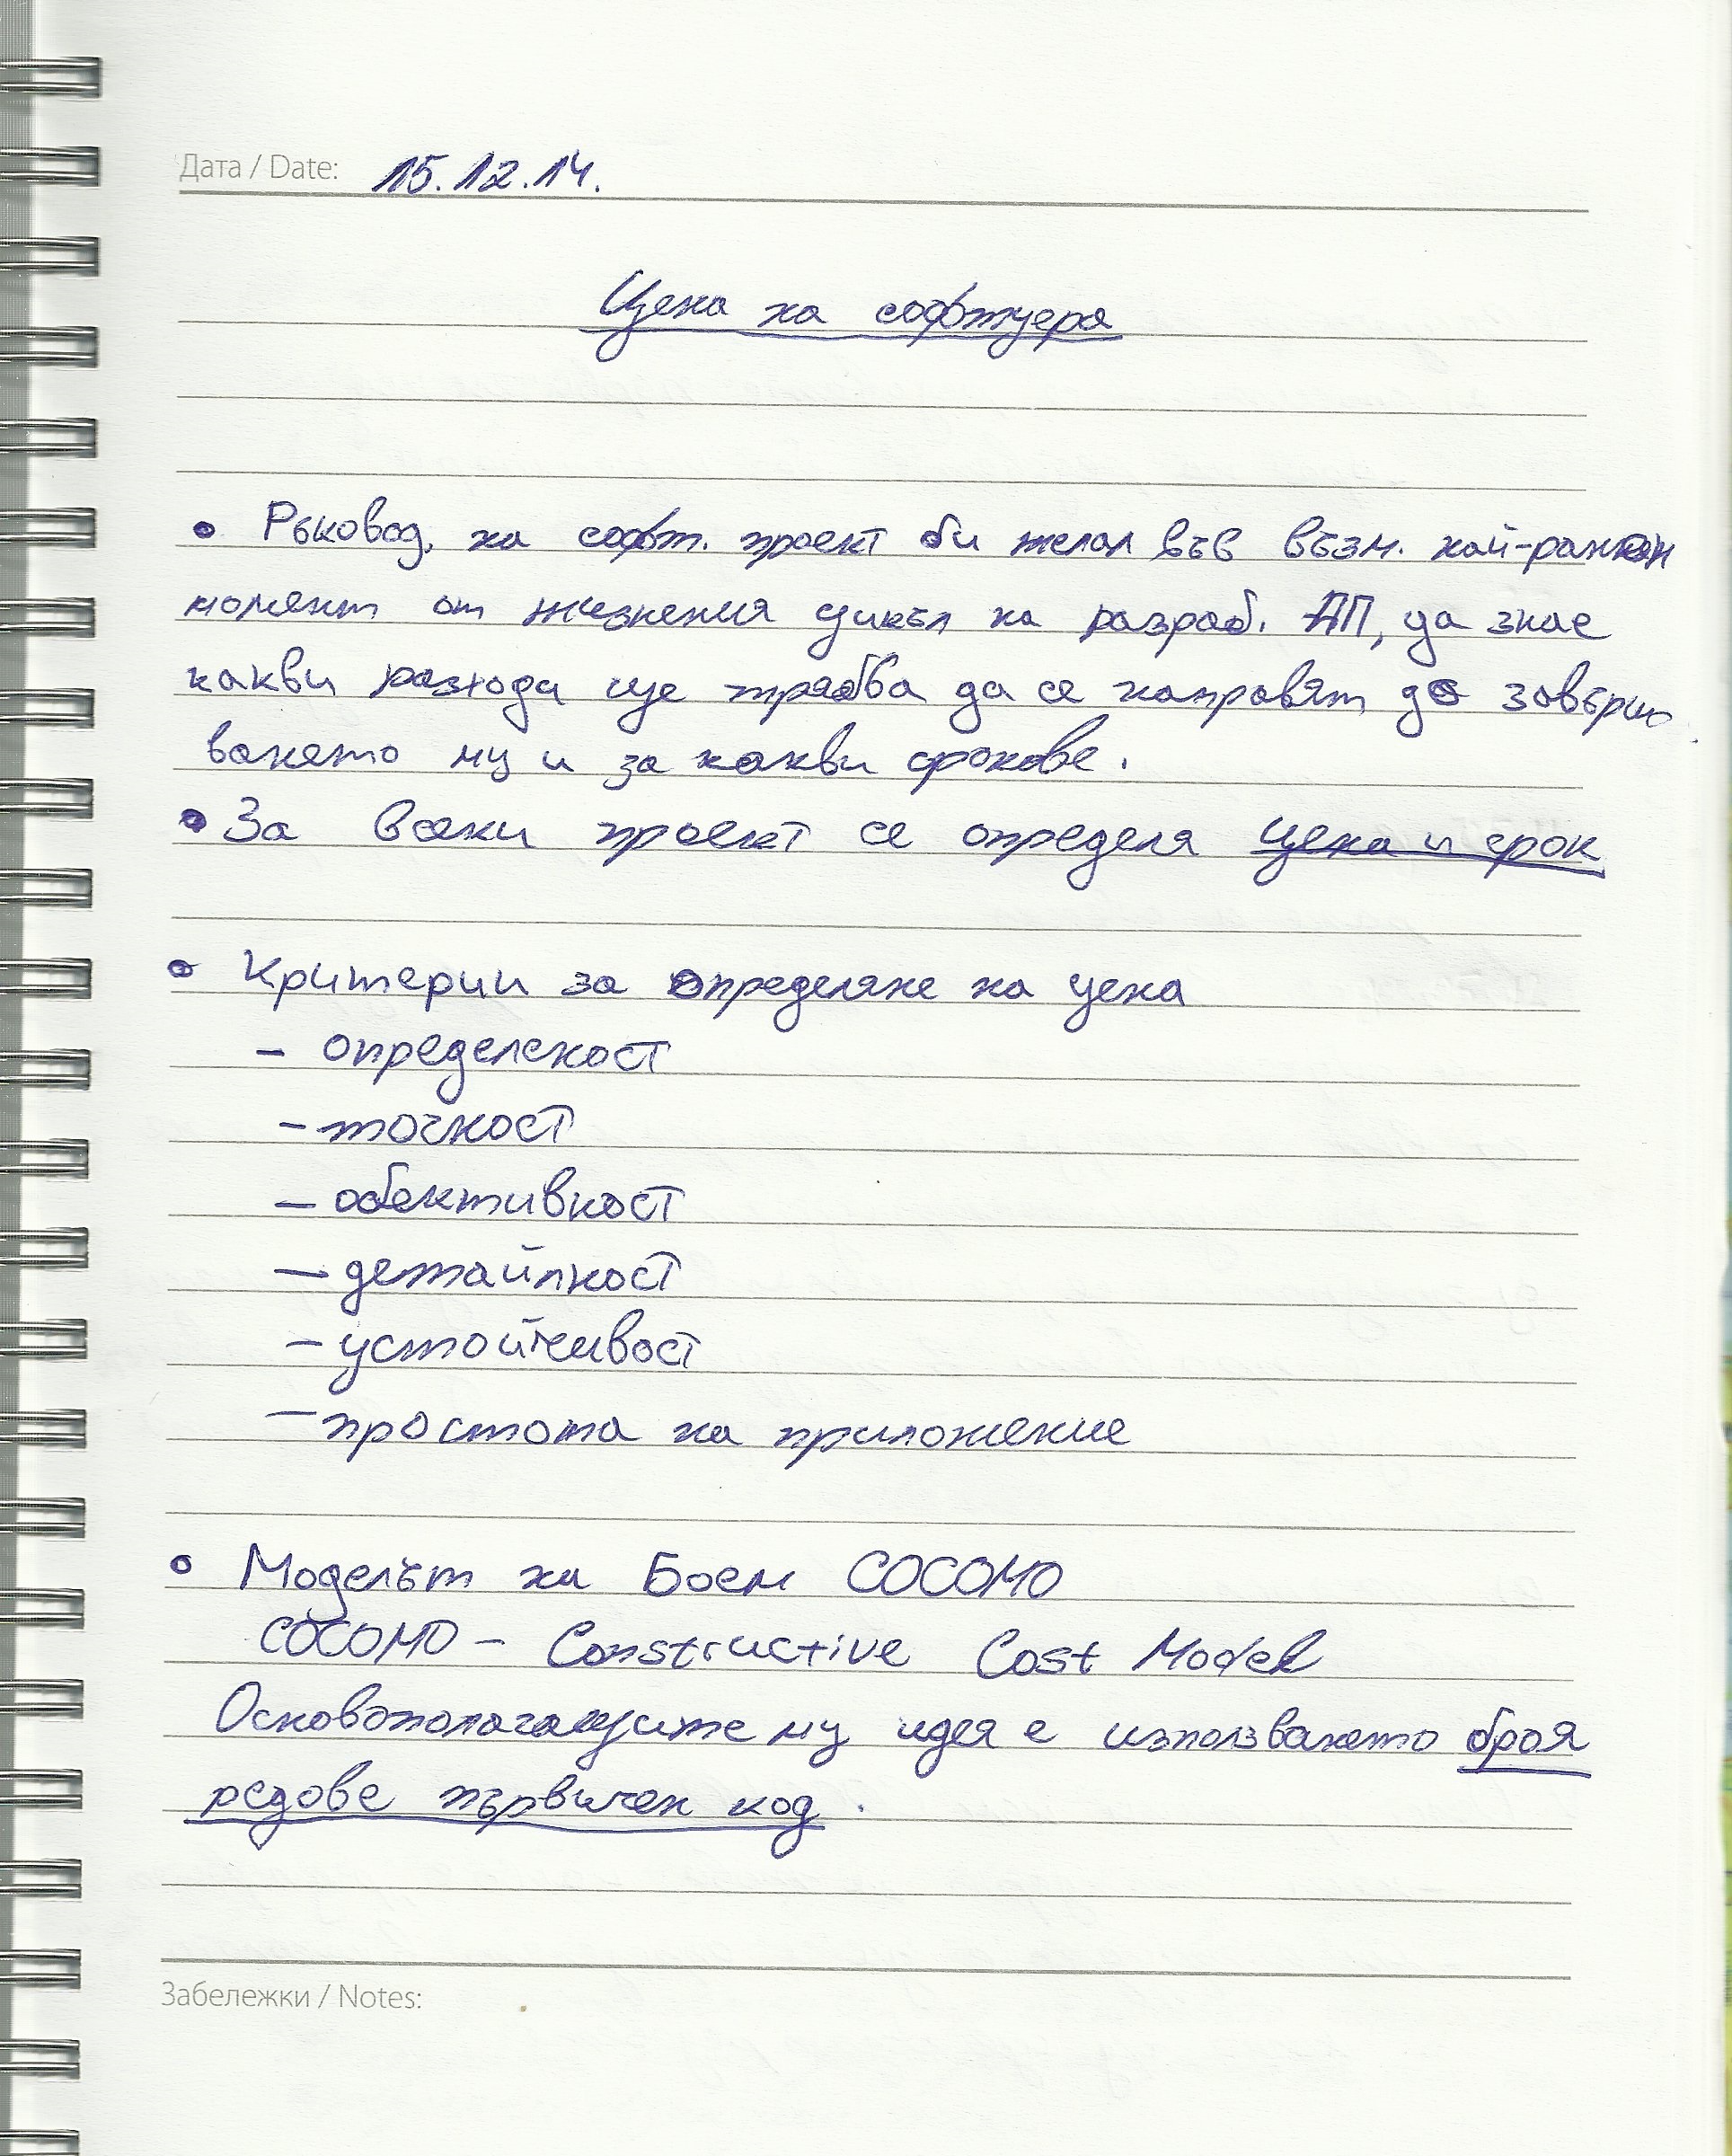 Дата / Date: 15.12.14.
Цена на софтуера
• Ръковод. на софт. проект би желал във възм. най-ранен
момент от жизнения цикъл на разраб. ПП, да знае
какви разходи ще трябва да се направят до завърш
ването му и за какви срокове.
• За всеки проект се определя цена и срок
• Критерии за определяне на цена
– определеност
– точност
– обективност
– детайлност
– устойчивост
– простота на приложение
• Моделът на Боем COCOMO
COCOMO – Constructive Cost Model
Основополагащите му идея е използването броя
редове първичен код.
Забележки / Notes: